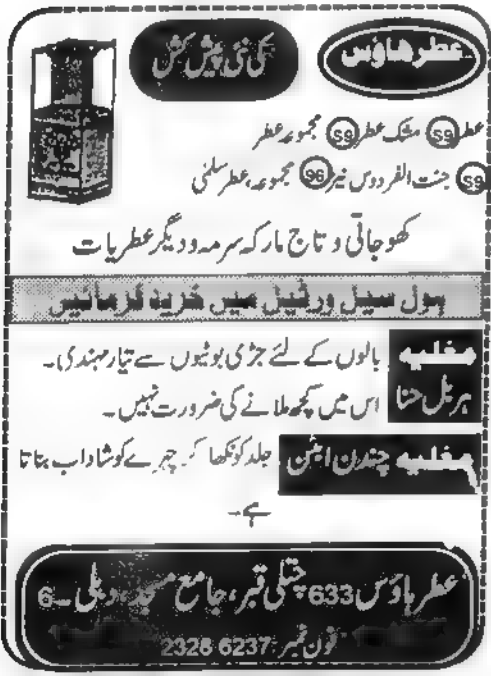 عطر هاؤس کی نئی پیش کش
عطر S9 مشک عطر S9 مجموعہ عطر
S9 جنت الفردوس نیز 96 مجموعہ، عطر سلمٰی
کھوجاتی و تاج مارکہ سرمہ و دیگر عطریات
ہول سیل و رٹیل میں خرید فرمائیں
مغلیہ ہربل حنا
بالوں کے لئے جڑی بوٹیوں سے تیار مہندی۔
اس میں کچھ ملانے کی ضرورت نہیں۔
مغلیہ چندن ابٹن جلد کو نکھا کر چہرے کو شاداب بناتا
ہے۔
عطر ہاؤس 633 چتلی قبر، جامع مسجد، دہلی ۔6
فون نمبر: 2328 6237